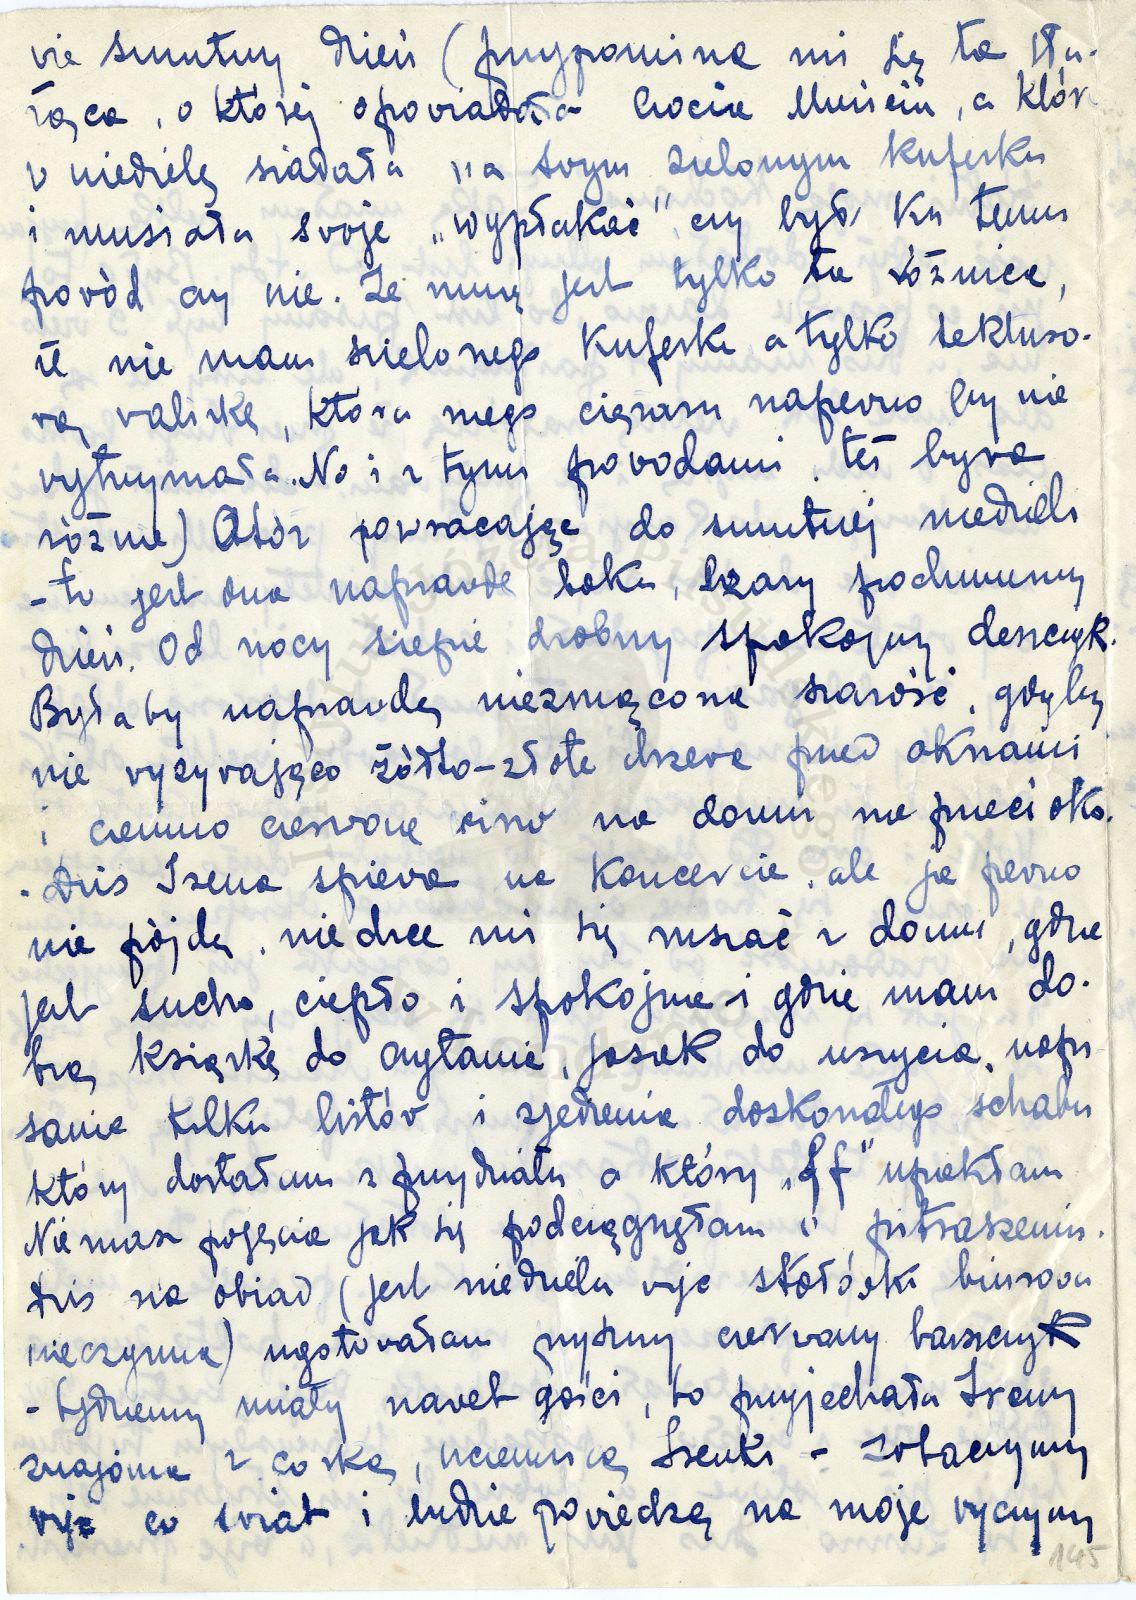 vie smutny dzień (przypomina mi się ta słu-
żąca, o której opowiadała Ciocia Muścia, a któr
w niedzielę siadała na swym zielonym kuferku
i musiała swoje „wypłakać" czy był ku temu
powód czy nie. Ze mną jest tylko ta różnica,
że nie mam zielonego kuferka a tylko tekturo-
wą walizkę, która mego ciężaru napewno by nie
wytrzymała. No i z tym powodami też bywa
różnie) Otóż powracając do smutnej niedzieli
- to jest ona naprawdę taka, szary pochmurny
dzień. Od nocy siepie drobny spokojny deszczyk.
Byłaby naprawdę niezmącona szarość, gdyby
nie wyzywająco żółto-złote drzewa przed oknami
i ciemno czerwone wino na domu na przeciwko.
- Dziś Irena śpiewa na koncercie, ale ja pewno
nie pójdę, nie chce mi się ruszać z domu, gdzie
jest sucho, ciepło i spokojnie i gdzie mam do-
brą książkę do czytania, jasiek do uszycia, napi
sanie kilku listów i zjedzenie doskonałego schabu
który dostałam z przydziału a który „ff" upiekłam
Nie masz pojęcia jak się podciągnęłam w pitraszeniu.
Dziś na obiad (jest niedziela więc stołówka biurowa
nieczynna) ugotowałam pyszny czerwony barszczyk
- będziemy miały nawet gości, bo przyjechała Ireny
znajoma z córką, uczennicą Irenki - zobaczymy
więc co świat i ludzie powiedzą na moje wyczyny
145